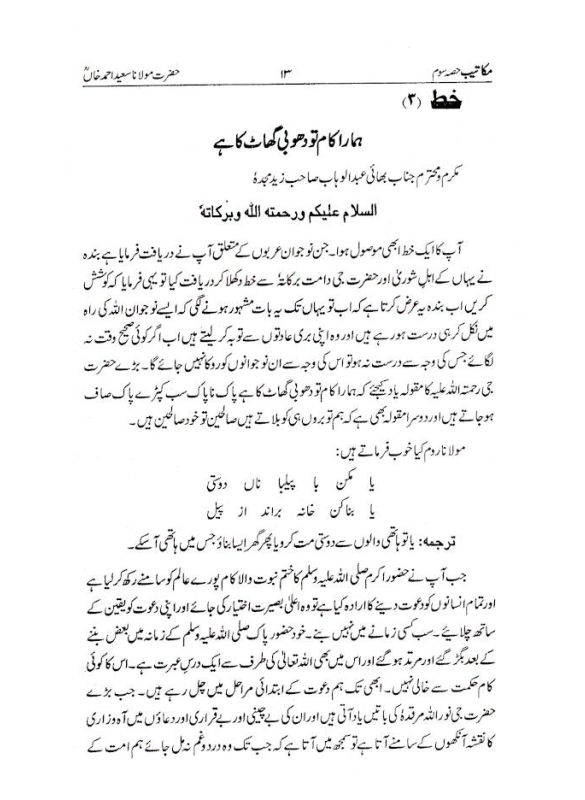 مکاتیب حصہ سوم ۱۳ حضرت مولانا سعید احمد خاںؒ
خط (۳)
ہمارا کام تو دھوبی گھاٹ کا ہے
مکرم و محترم جناب بھائی عبدالوہاب صاحب زید مجدہٗ
السلام علیکم ورحمته الله وبرکاتهٗ
آپ کا ایک خط ابھی موصول ہوا۔ جن نوجوان عربوں کے متعلق آپ نے دریافت فرمایا ہے بندہ
نے یہاں کے اہل شوریٰ اور حضرت جی دامت برکاتہٗ سے خط دکھلا کر دریافت کیا تو یہی فرمایا کہ کوشش
کریں اب بندہ یہ عرض کرتا ہے کہ اب تو یہاں تک یہ بات مشہور ہونے لگی کہ ایسے نوجوان اللہ کی راہ
میں نکل کر ہی درست ہورہے ہیں اور وہ اپنی بری عادتوں سے توبہ کرلیتے ہیں اب اگر کوئی صحیح وقت نہ
لگائے جس کی وجہ سے درست نہ ہو تو اس کی وجہ سے ان نوجوانوں کو روکا نہیں جائے گا۔ بڑے حضرت
جی رحمتہ اللہ علیہ کا مقولہ یاد کیجئے کہ ہمارا کام تو دھوبی گھاٹ کا ہے پاک ناپاک سب کپڑے پاک صاف
ہوجاتے ہیں اور دوسرا مقولہ بھی ہے کہ ہم تو بروں ہی کو بلاتے ہیں صالحین تو خود صالحین ہیں۔
مولانا روم کیا خوب فرماتے ہیں:
یا مکن با پیلبا ناں دوستی
یا بناکن خانہ براند از پیل
ترجمہ: یا تو ہاتھی والوں سے دوستی مت کرو یا پھر گھر ایسا بناؤ جس میں ہاتھی آسکے۔
جب آپ نے حضور اکرم صلی اللہ علیہ وسلم کا ختم نبوت والا کام پورے عالم کو سامنے رکھ کر لیا ہے
اور تمام انسانوں کو دعوت دینے کا ارادہ کیا ہے تو وہ اعلیٰ بصیرت اختیار کی جائے اور اپنی دعوت کو یقین کے
ساتھ چلایئے۔ سب کسی زمانے میں نہیں بنے۔ خود حضور پاک صلی اللہ علیہ وسلم کے زمانہ میں بعض بننے
کے بعد بگڑ گئے اور مرتد ہوگئے اور اس میں بھی اللہ تعالیٰ کی طرف سے ایک درس عبرت ہے۔ اس کا کوئی
کام حکمت سے خالی نہیں۔ ابھی تک ہم دعوت کے ابتدائی مراحل میں چل رہے ہیں۔ جب بڑے
حضرت جی نور اللہ مرقدہٗ کی باتیں یاد آتی ہیں اور ان کی بے چینی اور بے قراری اور دعاؤں میں آہ وزاری
کا نقشہ آنکھوں کے سامنے آتا ہے تو سمجھ میں آتا ہے کہ جب تک وہ درد و غم نہ مل جائے ہم امت کے